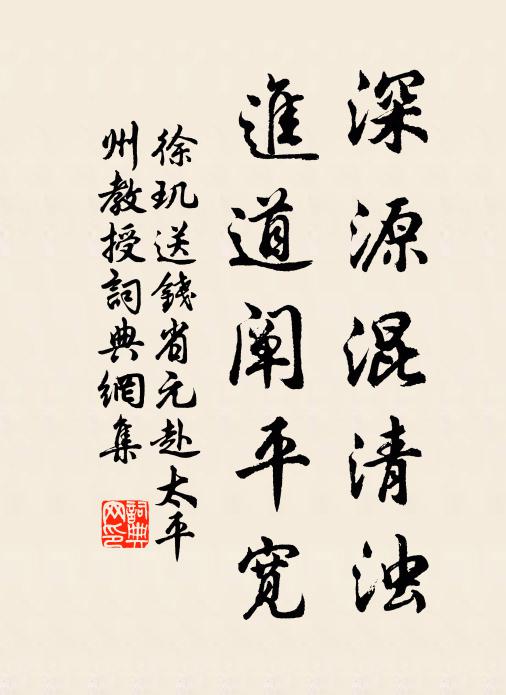 深源混清浊
進道阐平寬
徐玑送錢省元赴太平
州教授詞典網集
詞典网印